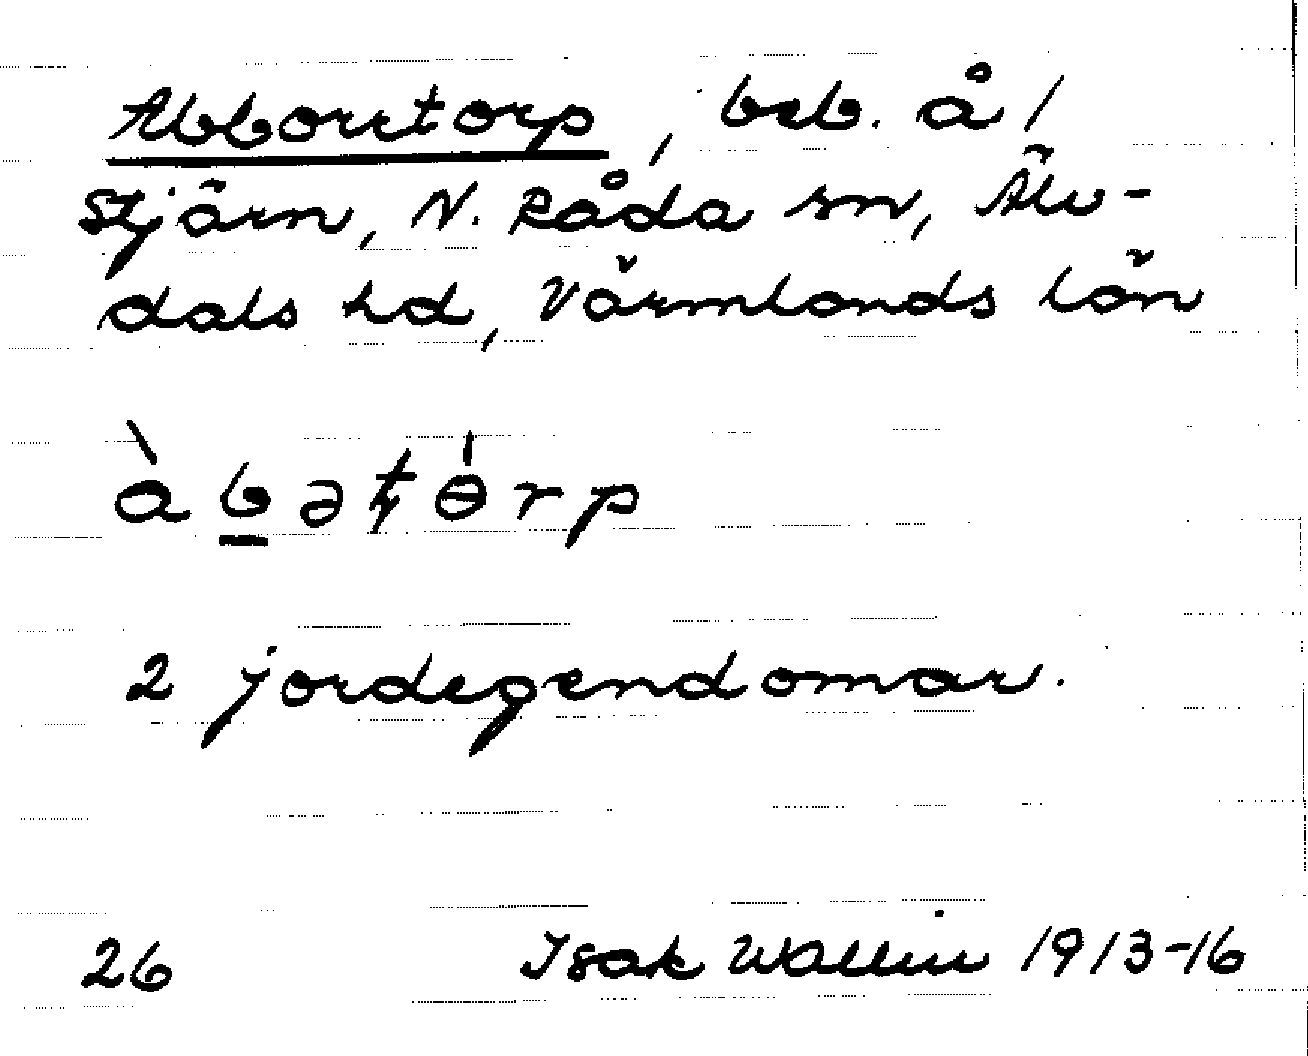 Abborrtorp, beb. å /
Stjärn, N. Råda sn, Älv-
dals hd, Värmlands län
àbəƫɵ́rp
2 jordegendomar.
26 Isak Wallin 1913-16